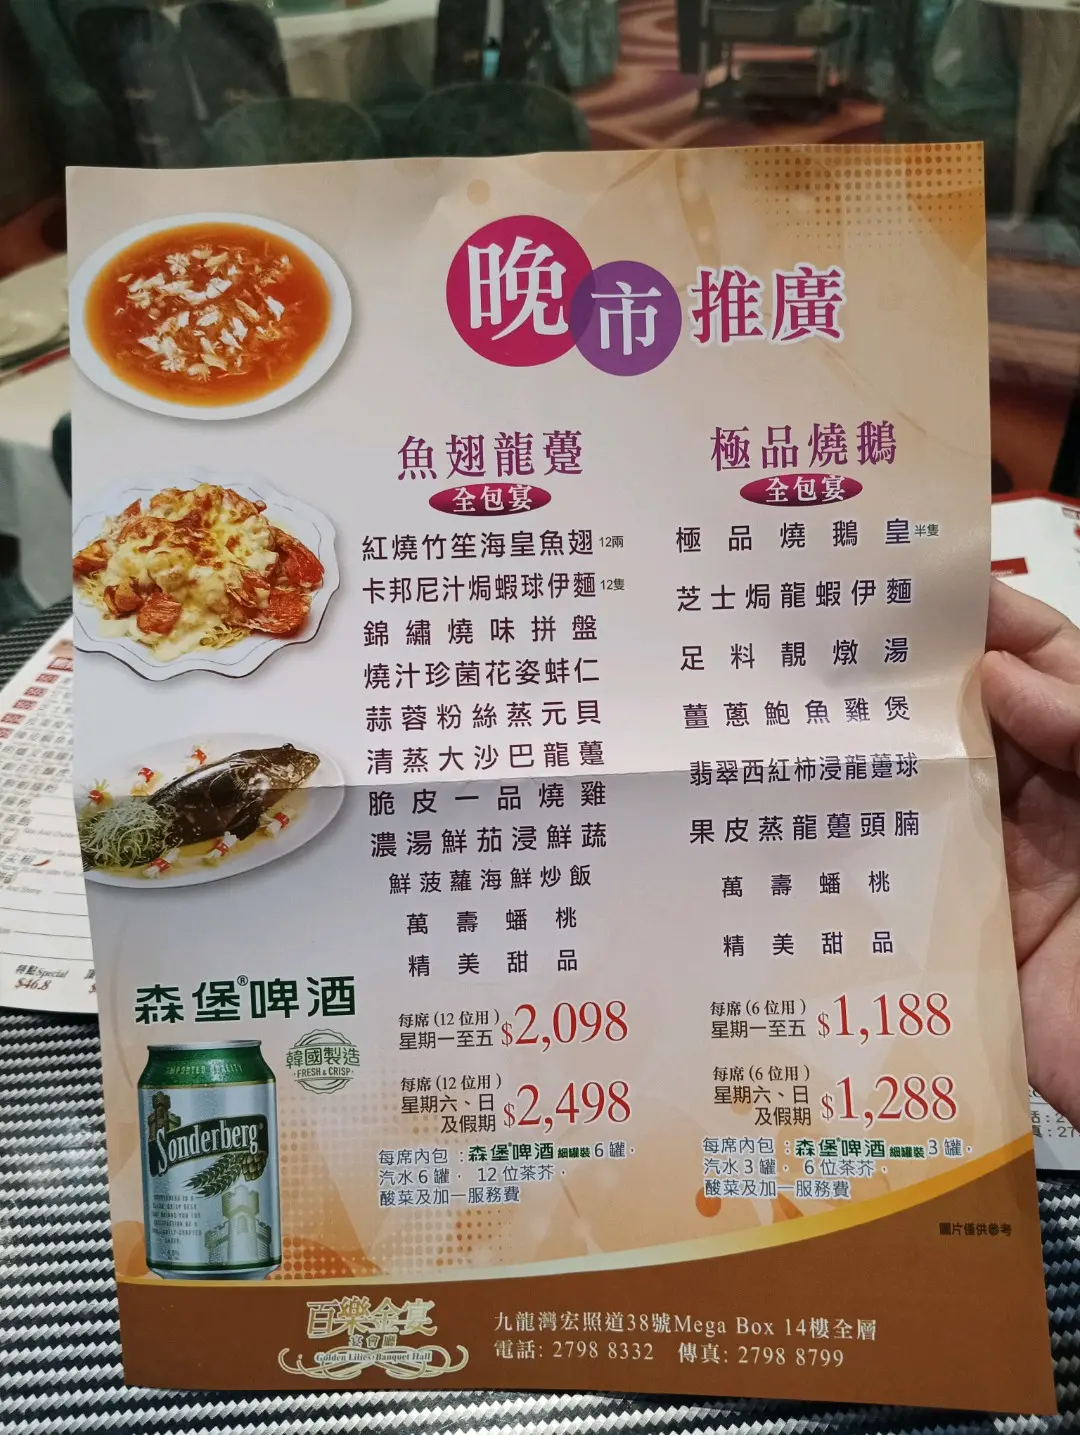 晚市推廣
魚翅龍躉
全包宴
紅燒竹笙海皇魚翅 12兩
卡邦尼汁焗蝦球伊麵 12隻
錦繡燒味拼盤
燒汁珍菌花姿蚌仁
蒜蓉粉絲蒸元貝
清蒸大沙巴龍躉
脆皮一品燒雞
濃湯鮮茄浸鮮蔬
鮮菠蘿海鮮炒飯
萬壽蟠桃
精美甜品
每席(12位用)
星期一至五 $2,098
每席(12位用)
星期六、日
及假期 $2,498
每席內包：森堡®啤酒 細罐裝 6罐，
汽水6罐， 12位茶芥，
酸菜及加一服務費
極品燒鵝
全包宴
極品燒鵝皇 半隻
芝士焗龍蝦伊麵
足料靚燉湯
薑蔥鮑魚雞煲
翡翠西紅柿浸龍躉球
果皮蒸龍躉頭腩
萬壽蟠桃
精美甜品
每席(6位用)
星期一至五 $1,188
每席(6位用)
星期六、日
及假期 $1,288
每席內包：森堡®啤酒 細罐裝 3罐，
汽水3罐， 6位茶芥，
酸菜及加一服務費
森堡®啤酒
韓國製造
FRESH & CRISP
IMPORTED QUALITY
Sonderberg
圖片僅供參考
百樂金宴
宴會廳
Golden Lilies Banquet Hall
九龍灣宏照道38號Mega Box 14樓全層
電話: 2798 8332 傳真: 2798 8799
特點 Special
$46.8